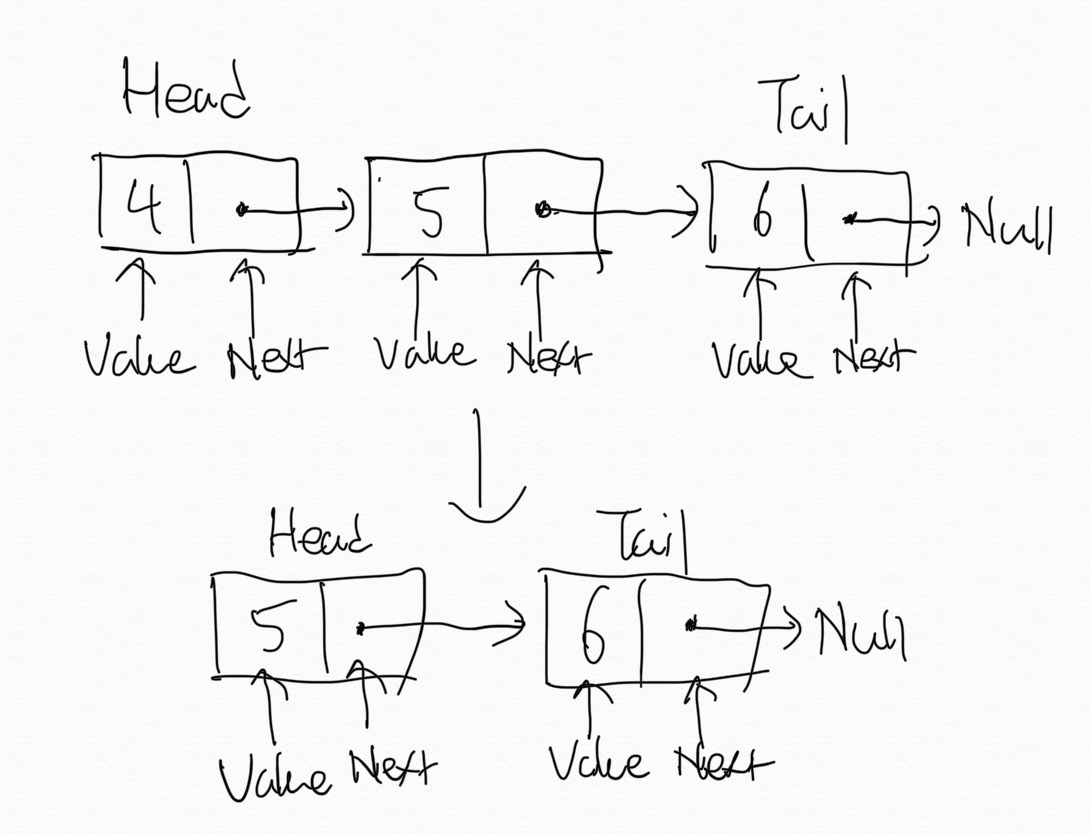 Head Tail
4 5 6 Null
Value Next Value Next Value Next
Head Tail
5 6 Null
Value Next Value Next